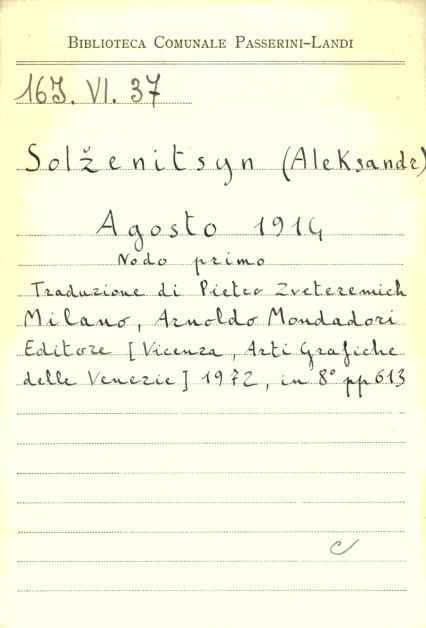 BIBLIOTECA COMUNALE PASSERINI-LANDI
16J. VI. 37
Solženitsyn (Aleksandr)
Agosto 1914
Nodo primo
Traduzione di Pietro Zveteremich
Milano, Arnoldo Mondadori
Editore [Vicenza, Arti Grafiche
delle Venezie] 1972, in 8° pp 613
C